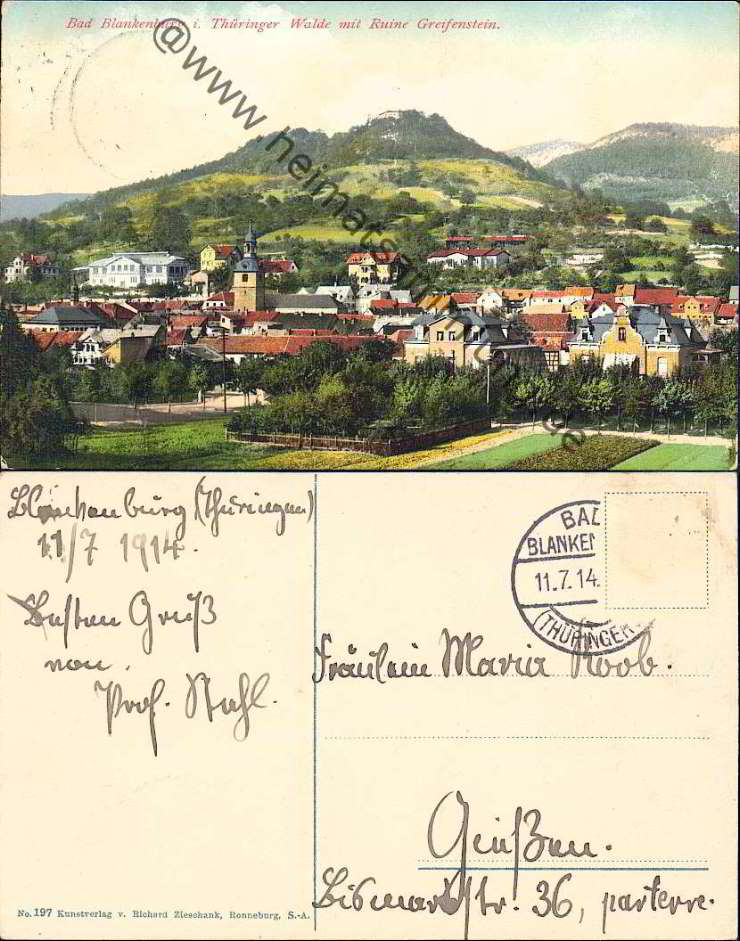 Bad Blankenburg i. Thüringer Walde mit Ruine Greifenstein.
@www.heimatsammlung.de@
Blankenburg (Thüringen)
11/7 1914.
Besten Gruß
von
Prof. Stahl.
BAD
BLANKEN
11.7.14.
(THÜRINGER
Fräulein Maria Roob.
Gießen.
Bismarckstr. 36, parterre.
No. 197 Kunstverlag v. Richard Zieschank, Ronneburg, S.-A.